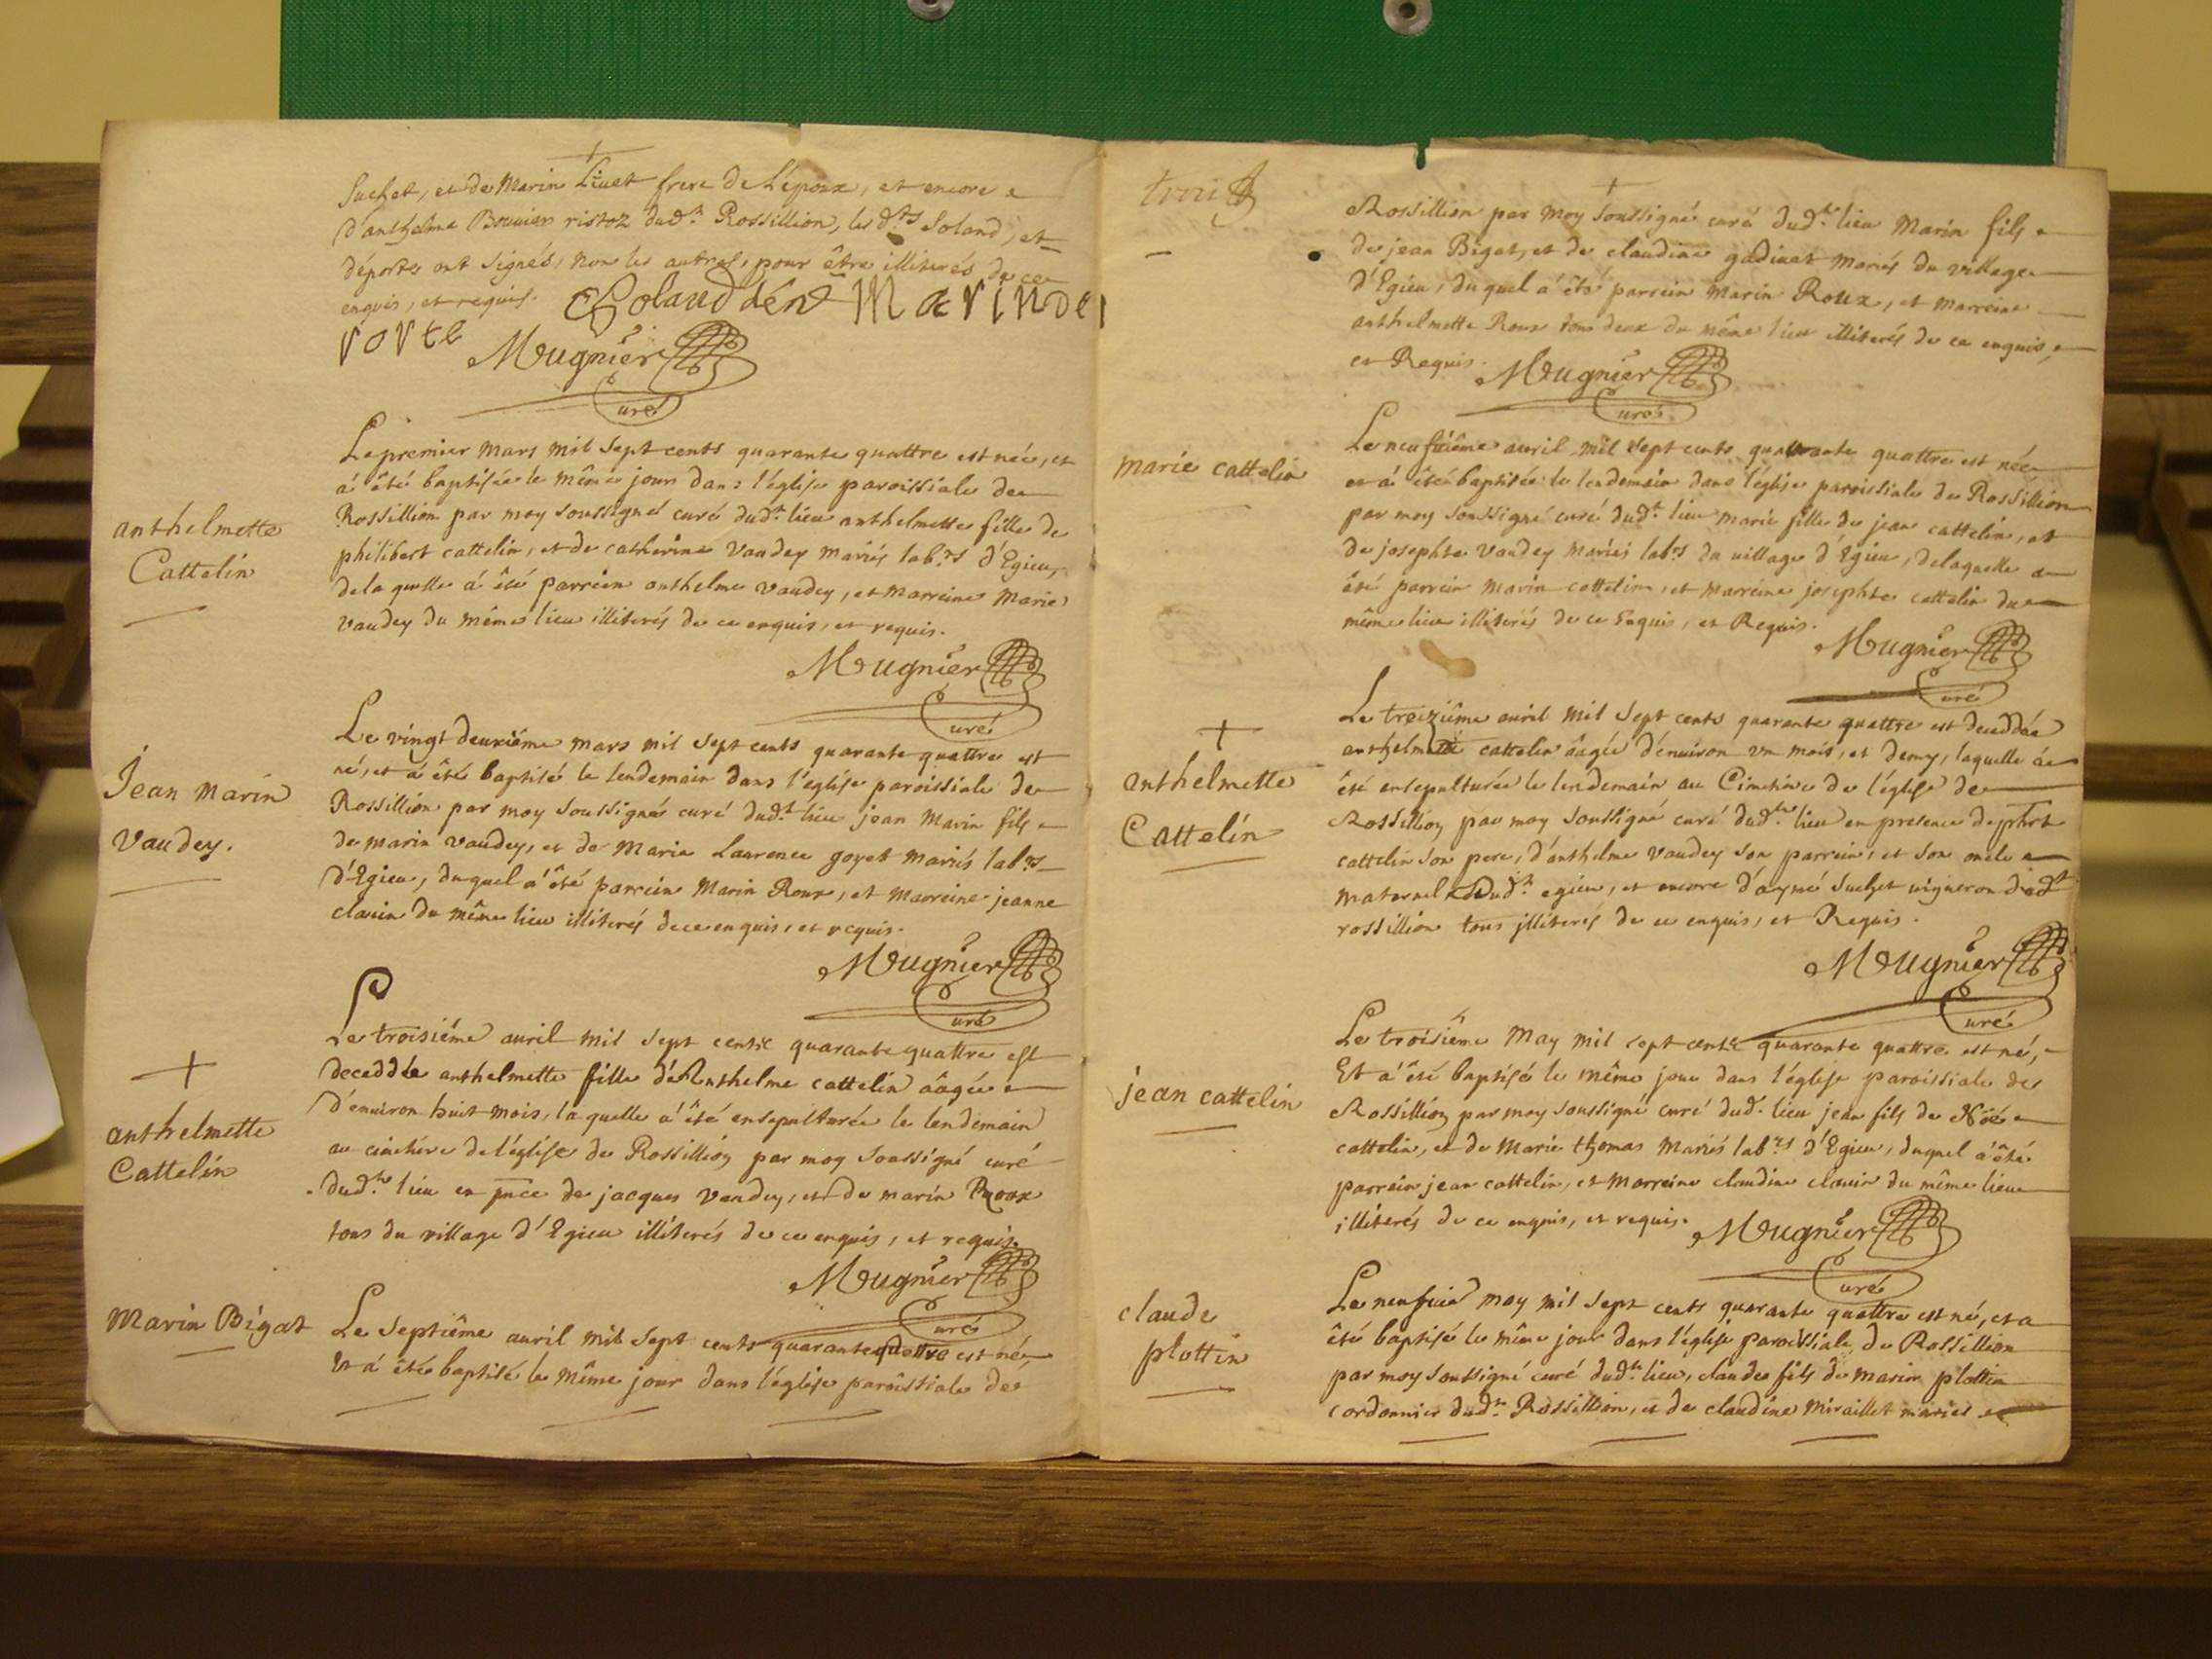 Suchet, et de Marin Livet frere de L'époux, et encore
d'anthelme Bouvier ristoz dud.t Rossillion, les d.ts Soland, et
déporte ont signés, non les autres, pour être illiterés de ce
enquis, et requis. Soland dént Marin de
porte
Mugnier
Curé
anthelmette
Cattelin
Le premier mars mil sept cents quarante quattre est née, et
á êté baptisée le même jour dans l'église paroissiale de
Rossillion par moy soussigné curé dud.t lieu anthelmette fille de
philibert cattelin, et de catherine vaudey mariés lab.rs d'Egieu,
de la quelle á êté parrein anthelme vaudey, et marreine Marie
vaudey du même lieu illiterés de ce enquis, et requis.
Mugnier
Curé
Jean Marin
Vaudey.
Le vingt deuxiéme mars mil sept cents quarante quattre est
né, et á êté baptisé le lendemain dans l'église paroissiale de
Rossillion par moy soussigné curé dud.t lieu jean Marin fils
de marin vaudey, et de Marie Laurence goyet mariés lab.rs
d'Egieu, du quel a' êté parrein Marin Roux, et marreine jeanne
clavin du même lieu illiterés de ce enquis, et requis.
Mugnier
Curé
+
anthelmette
Cattelin
Le troisiéme avril mil sept cents quarante quattre est
deceddée anthelmette fille d'Anthelme cattelin âagée
d'environ huit mois, la quelle a' êté ensepulturée le lendemain
au cimetiére de l'église de Rossillion par moy soussigné curé
dud.t lieu en pnce de jacques vaudey, et de marin Rooux
tous du village d'Egieu illiterés de ce enquis, et requis.
Mugnier
Curé
Marin Bigat
Le septiême avril mil sept cents quarante quattre est né,
et á êté baptisé le même jour dans l'église paroissiale de
trois
Rossillion par moy soussigné curé dud.t lieu Marin fils
de jean Bigat, et de claudine gadinet mariés du village
d'Egieu, du quel a' êté parrein Marin Roux, et marreine
anthelmette Roux tous deux du même lieu illiterés de ce enquis,
et Requis. Mugnier
Curé
marie cattelin
Le neufviême avril mil sept cents quarante quattre est née
et á êté baptisée le lendemain dans l'église paroissiale de Rossillion
par moy soussigné curé dud.t lieu marie fille de jean cattelin, et
de josephte vaudey mariés lab.rs du village d'Egieu, de laquelle a
êté parrein marin cattelin, et marreine josephte cattelin du
même lieu illiterés de ce Enquis, et Requis.
Mugnier
Curé
+
anthelmette
Cattelin
Le treiziême avril mil sept cents quarante quattre est deceddée
anthelmette cattelin âagée d'environ un mois, et demy, laquelle á
êté ensepulturée le lendemain au Cimetiére de l'église de
Rossillion par moy soussigné curé dud.t lieu en presence de phbrt
cattelin son pere, d'anthelme vaudey son parrein, et son oncle
maternel dud.t egieu, et encore d'aymé Suchet vigneron dud.t
rossillion tous illiterés de ce enquis, et Requis.
Mugnier
Curé
jean cattelin
Le troisiême May mil sept cents quarante quattre est né,
Et a' êté baptisé le même jour dans l'église paroissiale de
Rossillion par moy soussigné curé dud.t lieu jean fils de Noé
cattelin, et de Marie thomas mariés lab.rs d'Egieu, duquel a'êté
parrein jean cattelin, et marreine claudine clavin du même lieu
illiterés de ce enquis, et requis. Mugnier
Curé
claude
plottin
Le neufvié may mil sept cents quarante quattre est né, et a
êté baptisé le même jour dans l'église paroissiale de Rossillion
par moy soussigné curé dud.t lieu, claude fils de marin plottin
cordonnier dud.t Rossillion, et de claudine Miraillet mariés